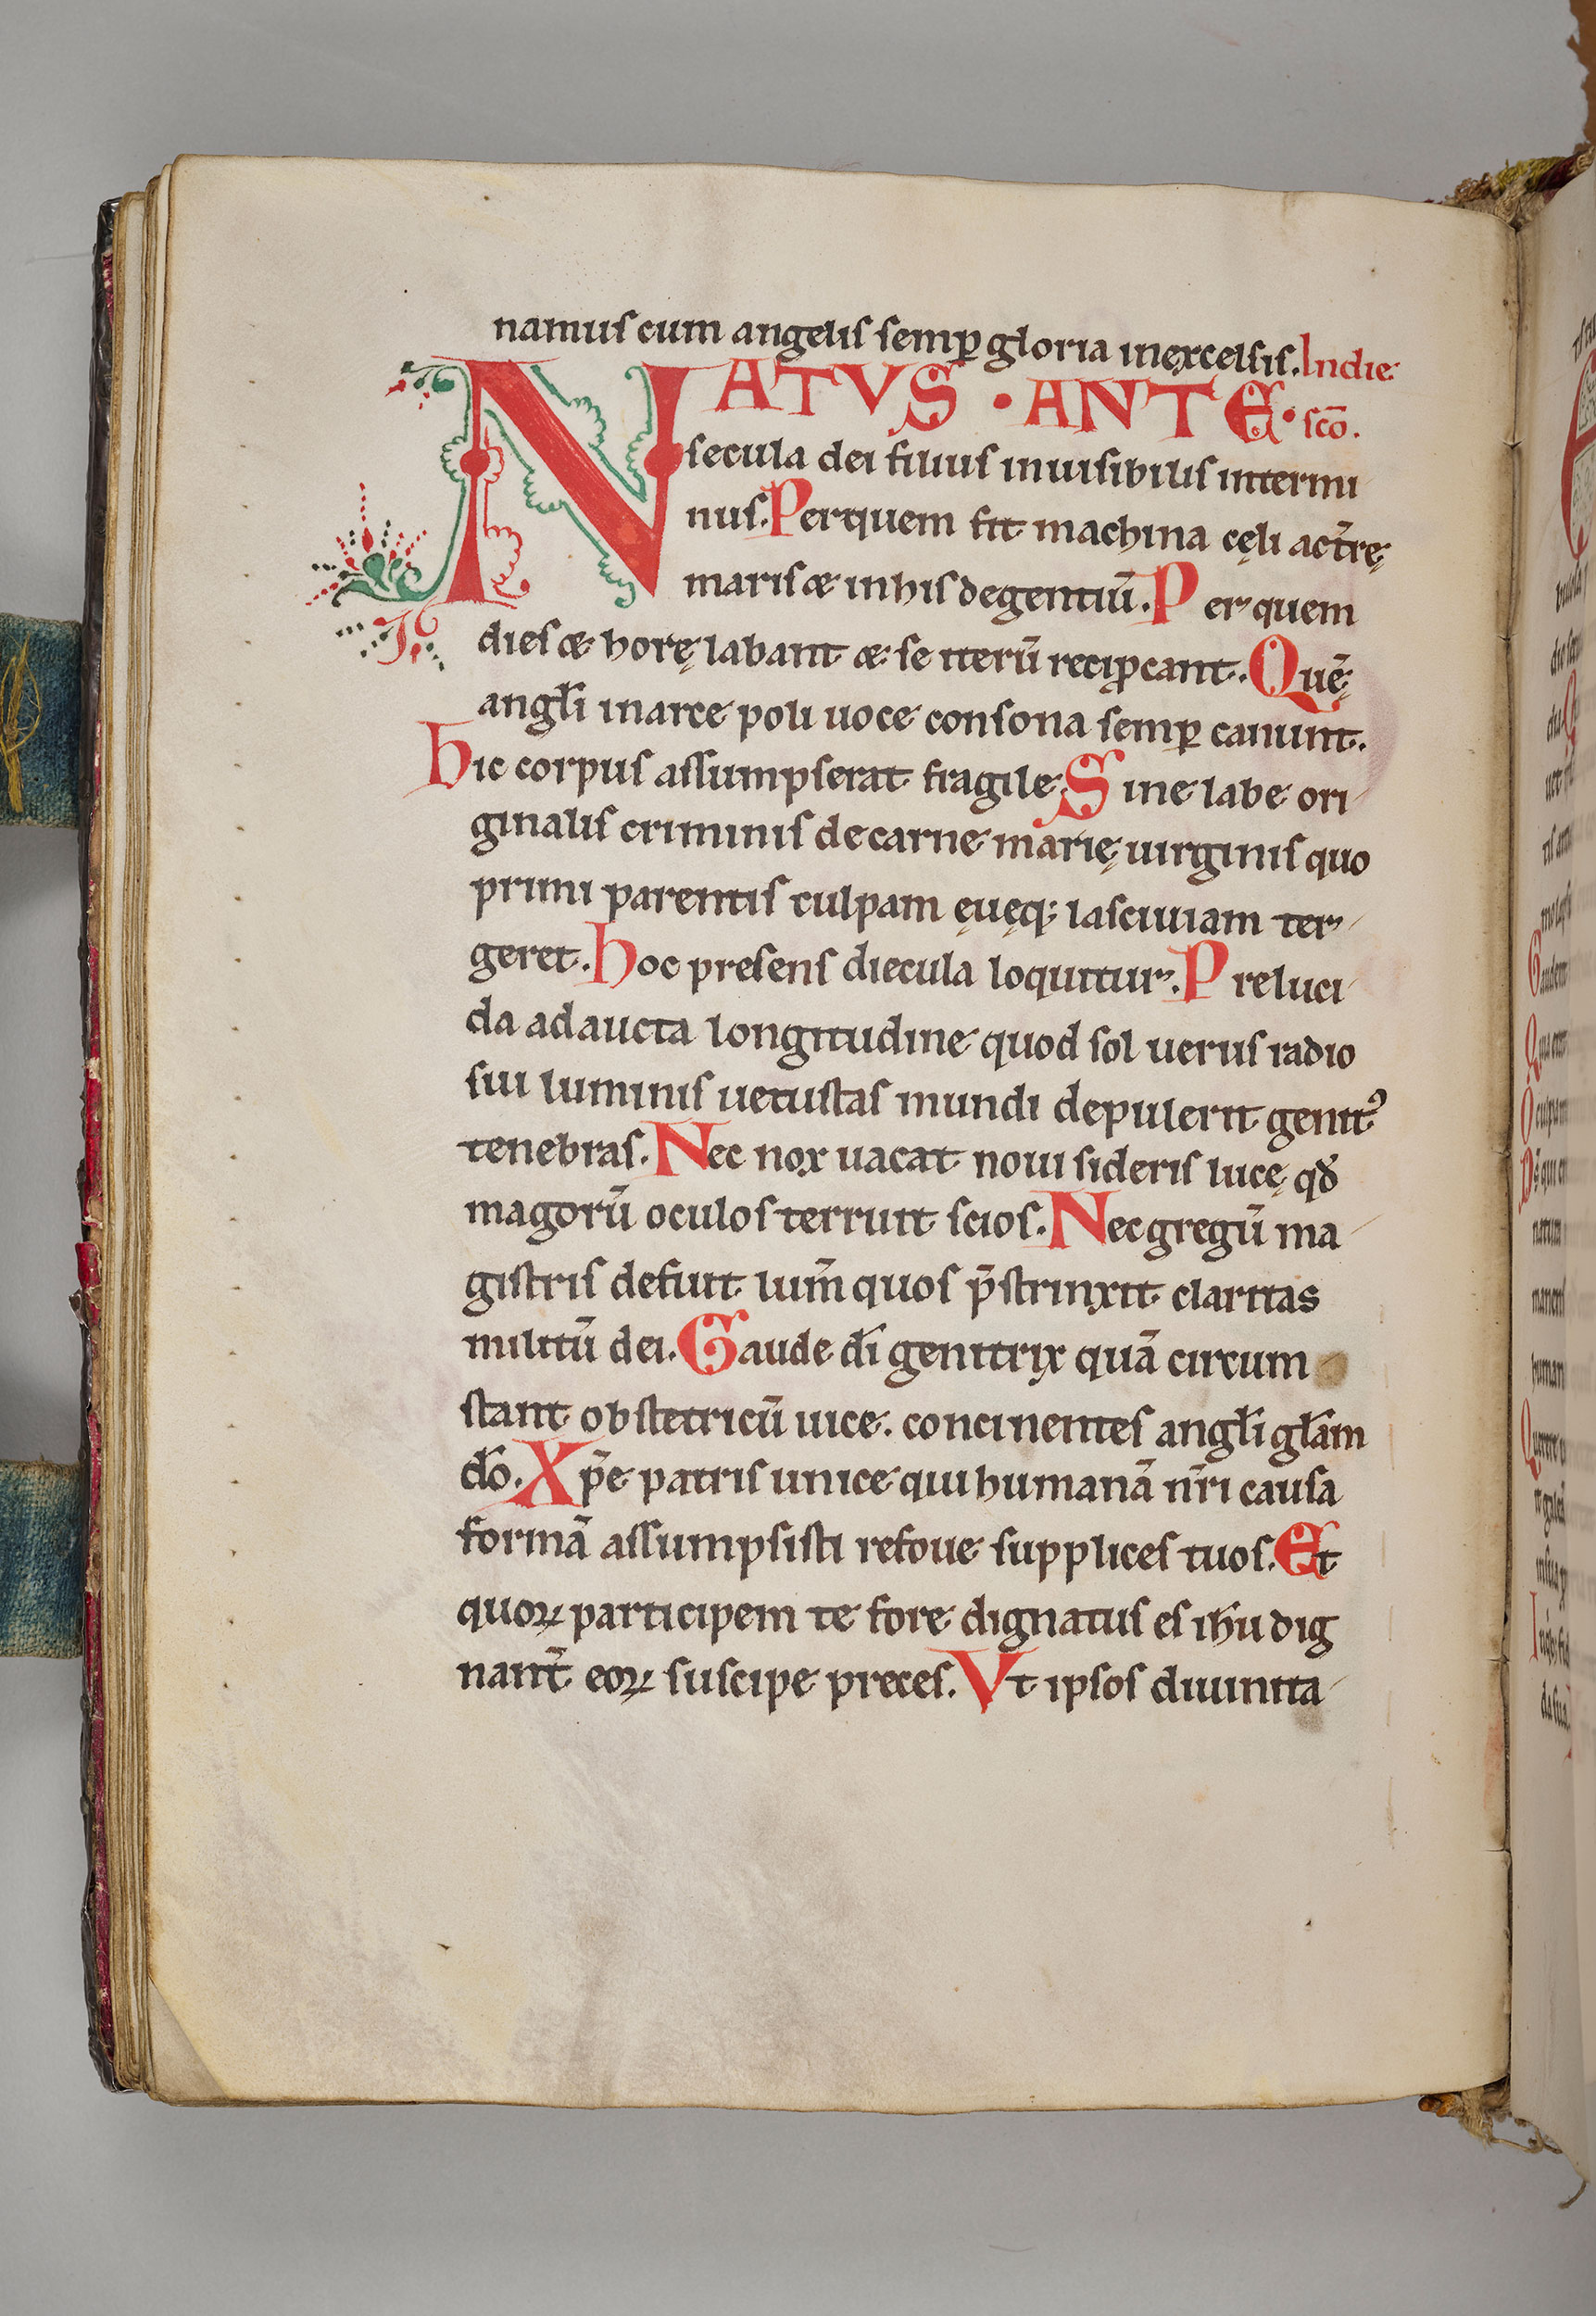 namus cum angelis semꝑ gloria inexcelsis. Indie
NATVS · ANTE · scō.
secula dei filius inuisibilis intermi
nus. Perquem fit machina cęli act̄rę
maris æ inhis degentiū. Per quem
dies æ horę labant æ se iterū recip̱cant. Quē
angłi inarce poli uoce consona semꝑ canunt.
Hic corpus assumpserat fragile Sine labe ori
ginalis criminis decarne marię uirginis quo
primi parentis culpam ęuęq; lasciuiam ter
geret. Hoc presens diecula loquitur. Preluci
da adaucta longitudine quod sol uerus radio
sui luminis uetustas mundi depulerit genit᾽
tenebras. Nec nox uacat noui sideris lucę qđ
magorū oculos terruit scios. Nec gregū ma
gistris defuit lum̄ quos p̄strinxit claritas
militū dei. Gaude dī genitrix quā circum
stant obstetricū uice. concinentes angłi głam
dō. Xp̄e patris unice qui humanā nr̄i causa
formā assumpsisti refoue supplices tuos. Et
quoꝝ participem te fore dignatus es iħu dig
nant̄ eoꝝ suscipe preces. Vt ipsos diuinita